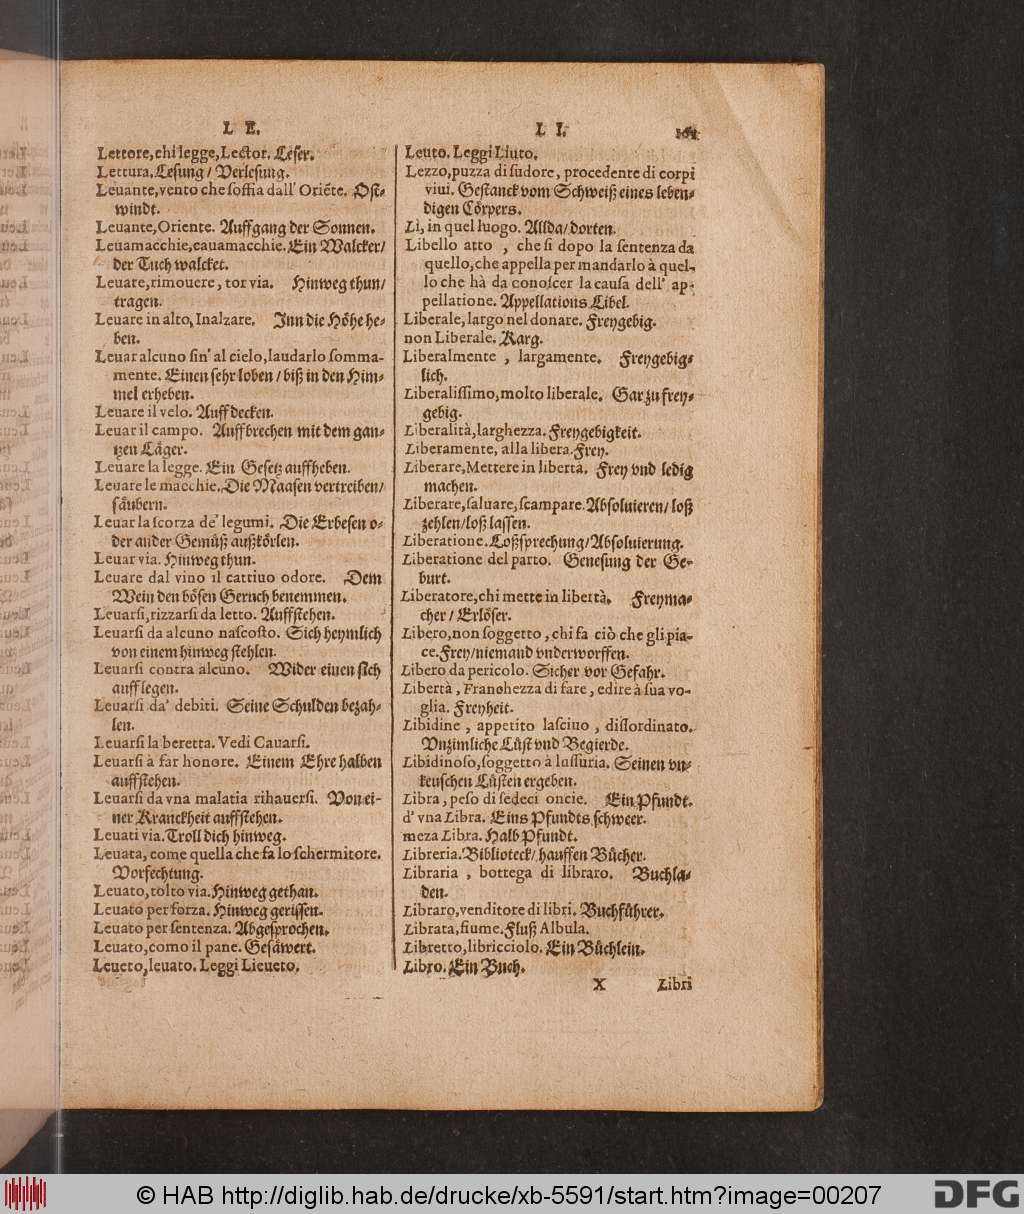 L E.
Lettore, chi legge, Lector. Leser.
Lettura. Lesung / Verlesung.
Leuante, vento che soffia dall' Oriẽte. Ost-
windt.
Leuante, Oriente. Auffgang der Sonnen.
Leuamacchie, cauamacchie. Ein Walcker /
der Tuch walcket.
Leuare, rimouere, tor via. Hinweg thun /
tragen.
Leuare in alto, Inalzare. Inn die Höhe he-
ben.
Leuar alcuno sin' al cielo, laudarlo somma-
mente. Einen sehr loben / biß in den Him-
mel erheben.
Leuare il velo. Auffdecken.
Leuar il campo. Auffbrechen mit dem gan-
tzen Läger.
Leuare la legge. Ein Gesetz auffheben.
Leuare le macchie. Die Maasen vertreiben /
säubern.
Leuar la scorza de' legumi. Die Erbesen o-
der ander Gemüß außkörlen.
Leuar via. Hinweg thun.
Leuare dal vino il cattiuo odore. Dem
Wein den bösen Geruch benemmen.
Leuarsi, rizzarsi da letto. Auffstehen.
Leuarsi da alcuno nascosto. Sich heymlich
von einem hinweg stehlen.
Leuarsi contra alcuno. Wider einen sich
aufflegen.
Leuarsi da' debiti. Seine Schulden bezah-
len.
Leuarsi la beretta. Vedi Cauarsi.
Leuarsi à far honore. Einem Ehre halben
auffstehen.
Leuarsi da vna malatia rihauersi. Von ei-
ner Kranckheit auffstehen.
Leuati via. Troll dich hinweg.
Leuata, come quella che fa lo schermitore.
Vorfechtung.
Leuato, tolto via. Hinweg gethan.
Leuato per forza. Hinweg gerissen.
Leuato per sentenza. Abgesprochen.
Leuato, como il pane. Gesäwert.
Leueto, leuato. Leggi Lieueto.
L I. 161
Leuto. Leggi Liuto.
Lezzo, puzza di sudore, procedente di corpi
viui. Gestanck vom Schweiß eines leben-
digen Cörpers.
Lì, in quel luogo. Allda / dorten.
Libello atto , che si dopo la sentenza da
quello, che appella per mandarlo à quel-
lo che hà da conoscer la causa dell' ap-
pellatione. Appellations Libel.
Liberale, largo nel donare. Freygebig.
non Liberale. Karg.
Liberalmente , largamente. Freygebig-
lich.
Liberalissimo, molto liberale. Gar zu frey-
gebig.
Liberalità, larghezza. Freygebigkeit.
Liberamente, alla libera. Frey.
Liberare, Mettere in libertà. Frey vnd ledig
machen.
Liberare, saluare, scampare. Absoluieren / loß
zehlen / loß lassen.
Liberatione. Loßsprechung / Absoluierung.
Liberatione del parto. Genesung der Ge-
burt.
Liberatore, chi mette in libertà. Freyma-
cher / Erlöser.
Libero, non soggetto, chi fa ciò che gli pia-
ce. Frey / niemand vnderworffen.
Libero da pericolo. Sicher vor Gefahr.
Libertà, Franchezza di fare, e dire à sua vo-
glia. Freyheit.
Libidine , appetito lasciuo , dissordinato.
Vnzimliche Lüst vnd Begierde.
Libidinoso, soggetto à lussuria. Seinen vn-
keuschen Lüsten ergeben.
Libra, peso di sedeci oncie. Ein Pfundt.
d' vna Libra. Eins Pfundts schweer.
meza Libra. Halb Pfundt.
Libreria. Biblioteck / hauffen Bücher.
Libraria , bottega di libraro. Buchla-
den.
Libraro, venditore di libri. Buchführer.
Librata, fiume. Fluß Albula.
Libretto, libricciolo. Ein Büchlein.
Libro. Ein Buch.
X Libri
© HAB http://diglib.hab.de/drucke/xb-5591/start.htm?image=00207
DFG